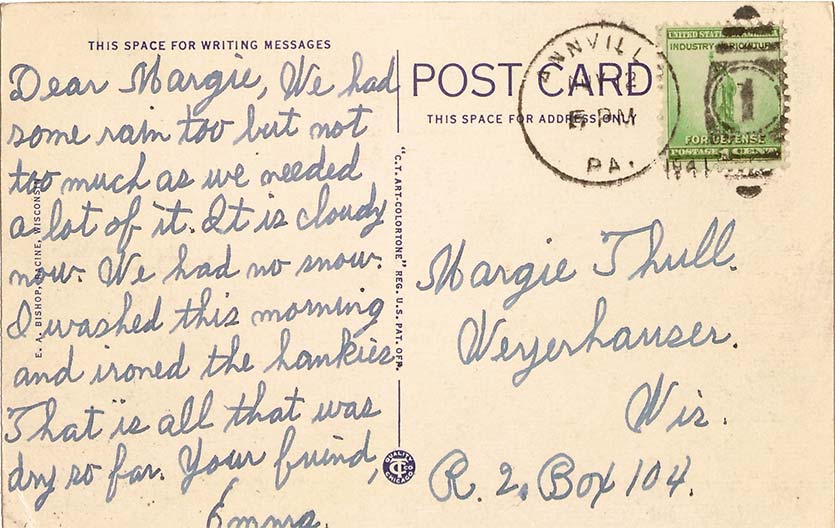 THIS SPACE FOR WRITING MESSAGES
Dear Margie, We had
some rain too but not
too much as we needed
a lot of it. It is cloudy
now. We had no snow.
I washed this morning
and ironed the hankies.
That is all that was
dry so far. Your friend,
Emma.
E. A. BISHOP, RACINE, WISCONSIN
"C.T. ART-COLORTONE" REG. U.S. PAT. OFF.
QUALITY
CT CO
CHICAGO
POST CARD
THIS SPACE FOR ADDRESS ONLY
ANNVILLE
PM
PA.
1941
1
UNITED STATES OF AMERICA
INDUSTRY AGRICULTURE
FOR DEFENSE
POSTAGE 1 CENT
Margie Thull.
Weyerhauser.
Wis.
R. 2. Box 104.